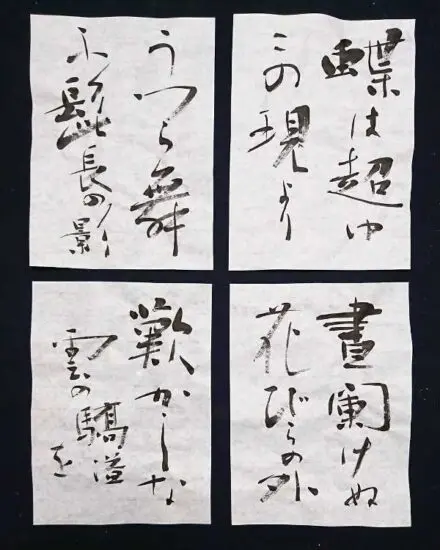 蝶は超ゆ
この現より
うつら舞
ふ髭長の影
晝闌けぬ
花びらの外
歎かしな
雲の驕溢を